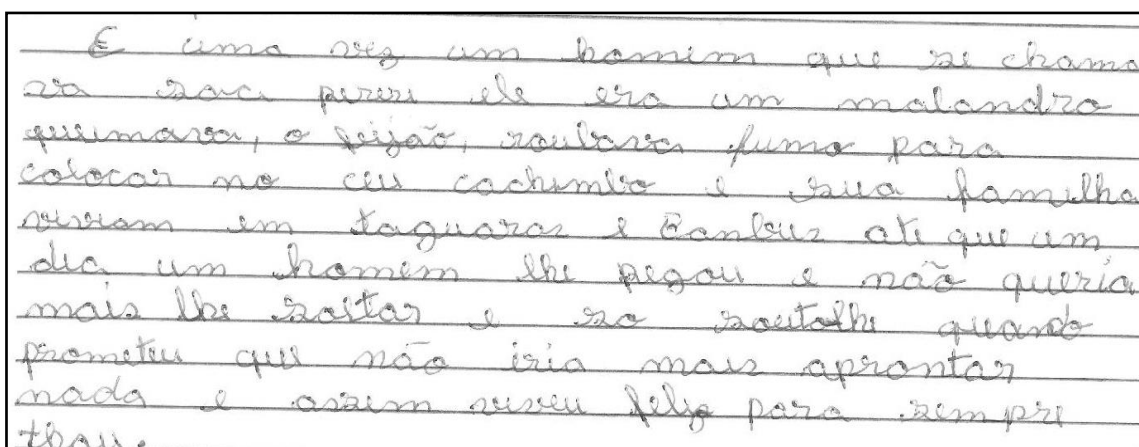 E uma vez um homem que se chama
va saci perere ele era um malandro
queimava, o feijão, roubava fumo para
colocar no ceu cachimbo e sua familha
viviam em taguaras e Banbus ate que um
dia um homem lhe pegou e não queria
mais lhe soltar e so soutolhe quando
prometeu que não iria mais aprontar
nada e assim viveu felis para sempre
thau.